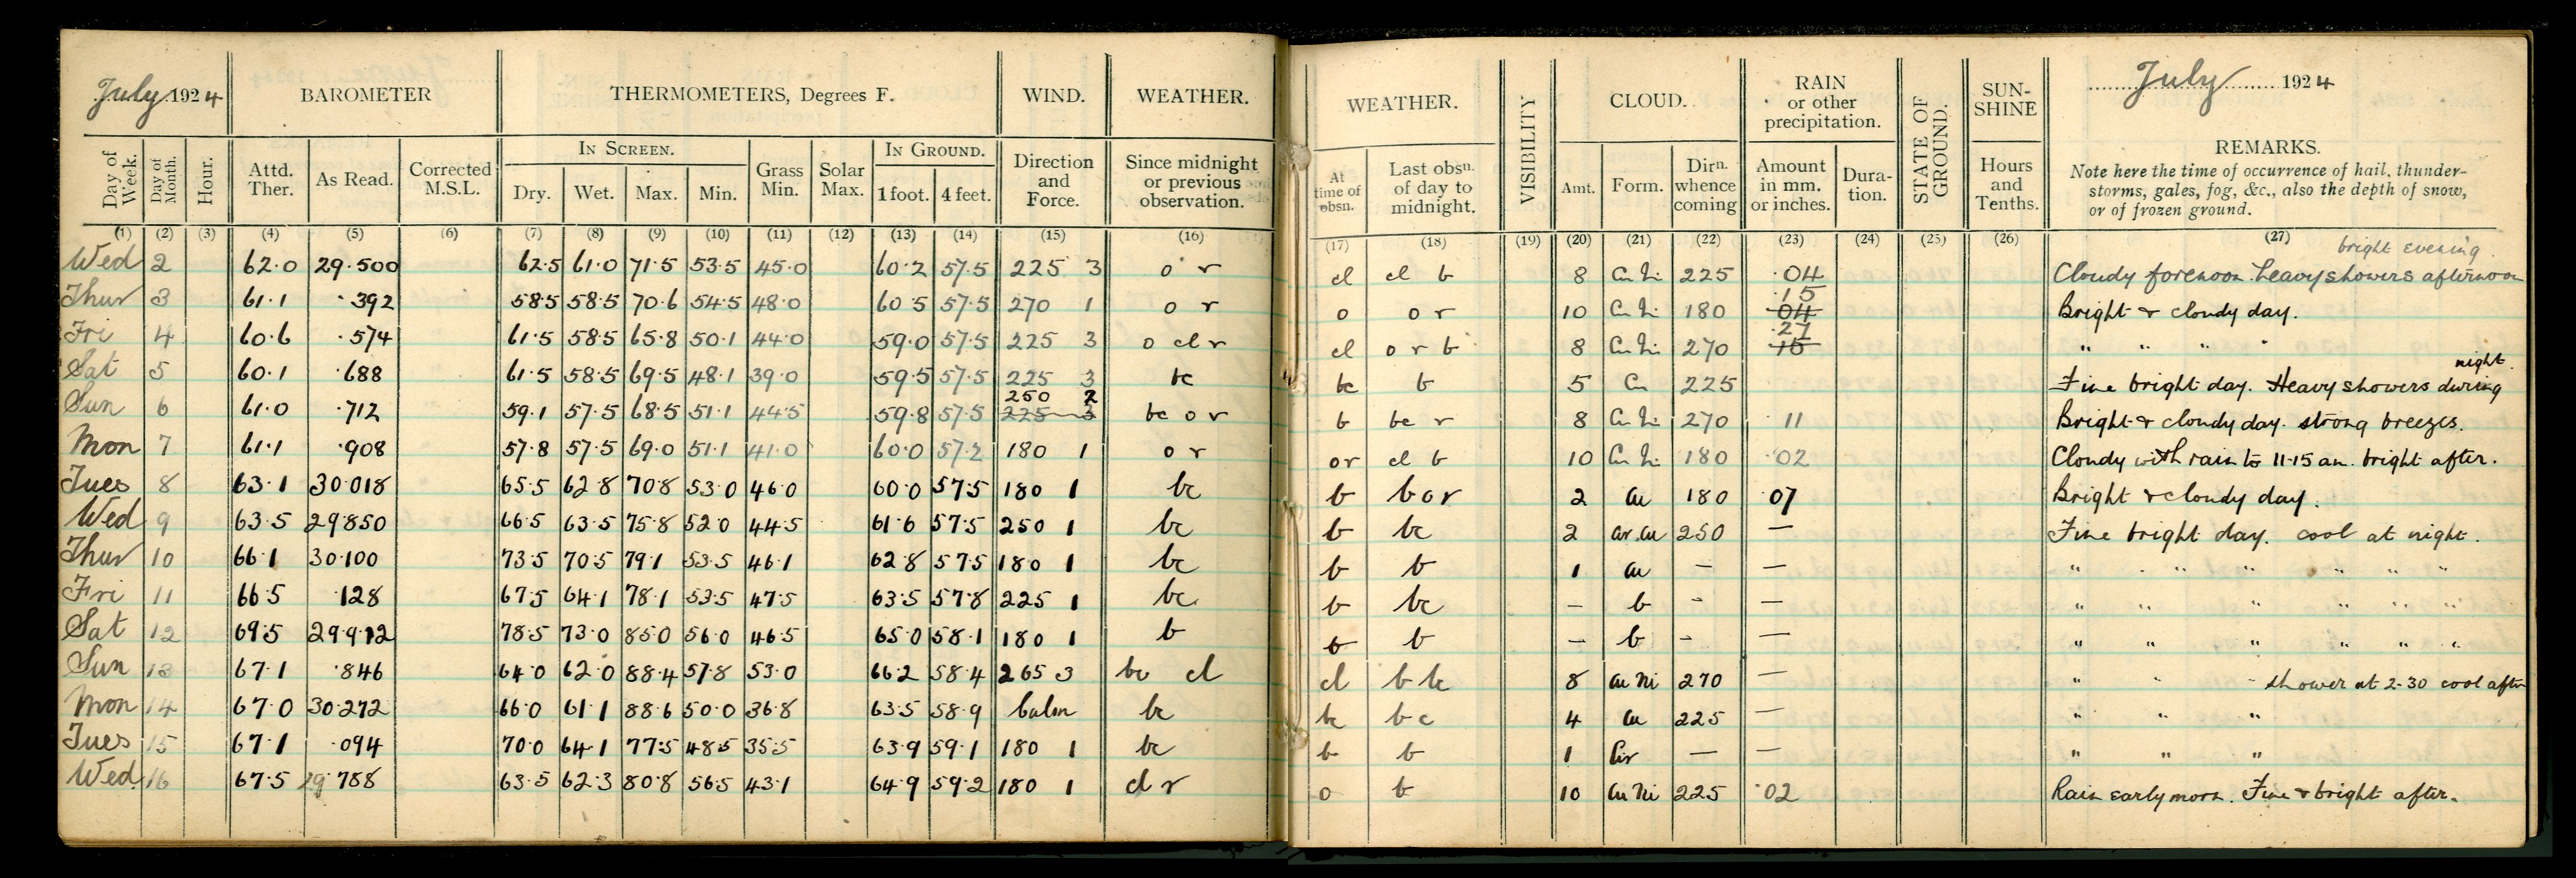 July 1924
BAROMETER THERMOMETERS, Degrees F. WIND. WEATHER.
Day of Week. Day of Month. Hour. Attd. Ther. As Read. Corrected M.S.L. IN SCREEN. Dry. Wet. Max. Min. Grass Min. Solar Max. IN GROUND. 1 foot. 4 feet. Direction and Force. Since midnight or previous observation.
(1) (2) (3) (4) (5) (6) (7) (8) (9) (10) (11) (12) (13) (14) (15) (16)
Wed 2 62.0 29.500 62.5 61.0 71.5 53.5 45.0 60.2 57.5 225 3 o r
Thur 3 61.1 .392 58.5 58.5 70.6 54.5 48.0 60.5 57.5 270 1 o r
Fri 4 60.6 .574 61.5 58.5 65.8 50.1 44.0 59.0 57.5 225 3 o cl r
Sat 5 60.1 .688 61.5 58.5 69.5 48.1 39.0 59.5 57.5 225 3 bc
250 2
Sun 6 61.0 .712 59.1 57.5 68.5 51.1 44.5 59.8 57.5 225 3 bc o r
Mon 7 61.1 .908 57.8 57.5 69.0 51.1 41.0 60.0 57.2 180 1 o r
Tues 8 63.1 30.018 65.5 62.8 70.8 53.0 46.0 60.0 57.5 180 1 bc
Wed 9 63.5 29.850 66.5 63.5 75.8 52.0 44.5 61.6 57.5 250 1 bc
Thur 10 66.1 30.100 73.5 70.5 79.1 53.5 46.1 62.8 57.5 180 1 bc
Fri 11 66.5 .128 67.5 64.1 78.1 53.5 47.5 63.5 57.8 225 1 bc
Sat 12 69.5 29.912 78.5 73.0 85.0 56.0 46.5 65.0 58.1 180 1 b
Sun 13 67.1 .846 64.0 62.0 88.4 57.8 53.0 66.2 58.4 265 3 bc cl
Mon 14 67.0 30.272 66.0 61.1 88.6 50.0 36.8 63.5 58.9 Calm bc
Tues 15 67.1 .094 70.0 64.1 77.5 48.5 35.5 63.9 59.1 180 1 bc
Wed 16 67.5 29.788 63.5 62.3 80.8 56.5 43.1 64.9 59.2 180 1 cl r
WEATHER. VISIBILITY CLOUD. RAIN or other precipitation. STATE OF GROUND. SUN-SHINE July 1924
At time of obsn. Last obsn. of day to midnight. Amt. Form. Dirn. whence coming Amount in mm. or inches. Dura-tion. Hours and Tenths. REMARKS.
Note here the time of occurrence of hail, thunder-
storms, gales, fog, &c., also the depth of snow,
or of frozen ground.
(17) (18) (19) (20) (21) (22) (23) (24) (25) (26) (27)
bright evening
cl cl b 8 Cu Ni 225 .04 Cloudy forenoon. heavy showers afternoon
.15
o o r 10 Cu Ni 180 .04 Bright & cloudy day.
.27
cl o r b 8 Cu Ni 270 .15 " " " "
night.
bc b 5 Cu 225 Fine bright day. Heavy showers during
b bc r 8 Cu Ni 270 .11 Bright & cloudy day. strong breezes.
or cl b 10 Cu Ni 180 .02 Cloudy with rain to 11-15 am. bright after.
b b o r 2 Cu 180 .07 Bright & cloudy day.
b bc 2 Cir.Cu 250 — Fine bright day. cool at night.
b b 1 Cu — — " " " " " " "
b bc — b - — " " " " " "
b b — b - — " " " " " "
cl b bc 8 Cu Ni 270 — " " " shower at 2-30 cool after
bc b c 4 Cu 225 — " " "
b b 1 Cir — — " " "
o b 10 Cu Ni 225 .02 Rain early morn. Fine & bright after.